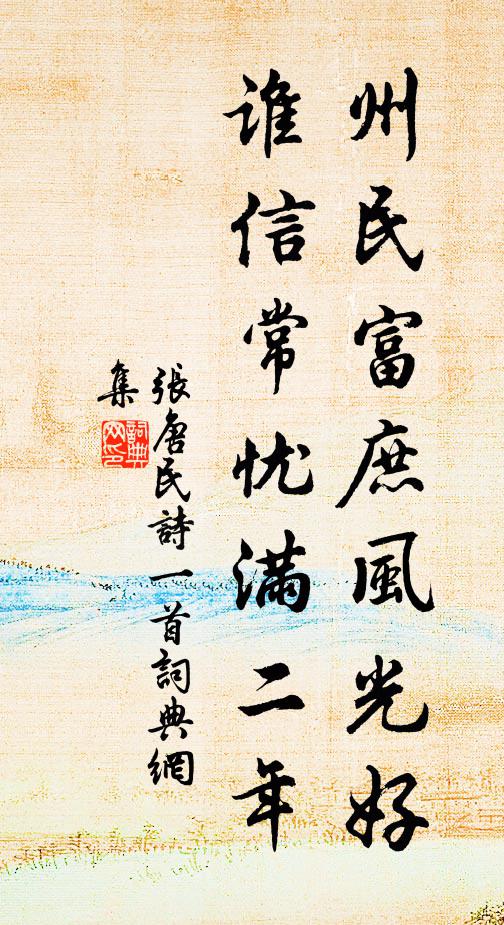 州民富庶風光好
谁信常忧满二年
張唐民詩一首詞典網
集
詞典
网印